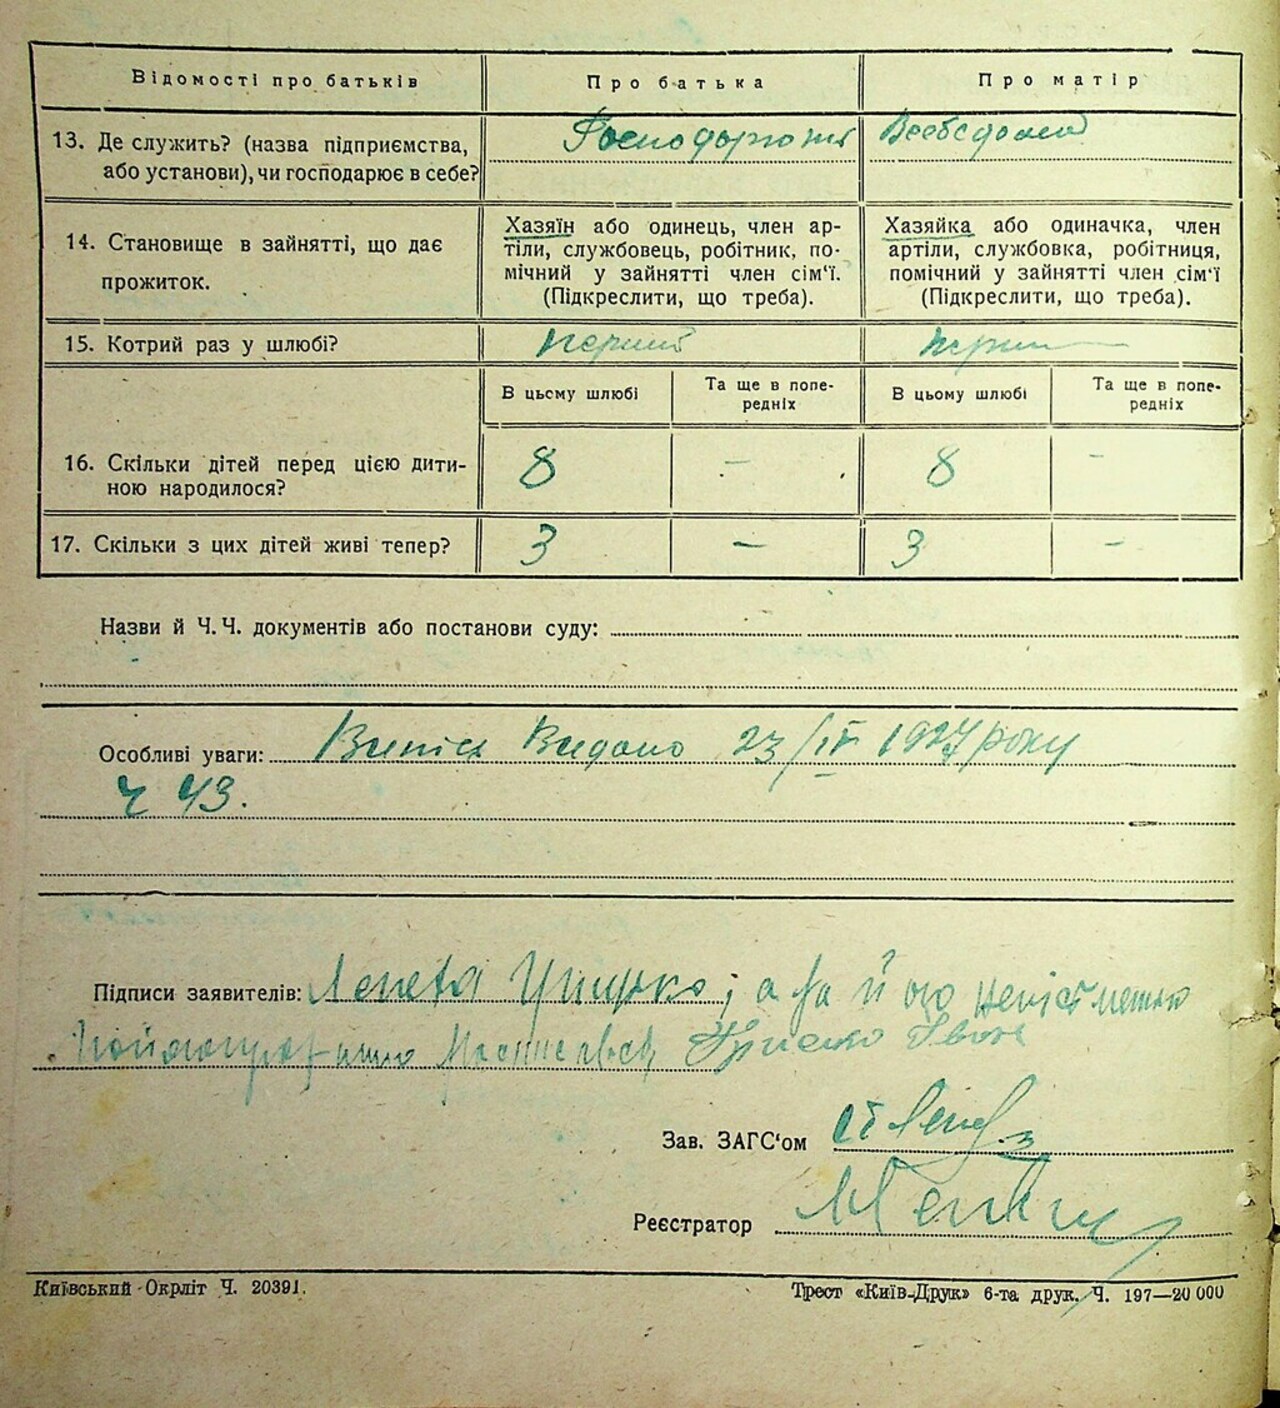 Відомості про батьків
Про батька
Про матір
13. Де служить? (назва підприємства,
або установи), чи господарює в себе?
14. Становище в зайнятті, що дає
прожиток.
Хазяїн або одинець, член ар-
тіли, службовець, робітник, по-
мічний у зайнятті член сім‘ї.
(Підкреслити, що треба).
Хазяйка або одиначка, член
артіли, службовка, робітниця,
помічний у зайнятті член сім‘ї
(Підкреслити, що треба).
15. Котрий раз у шлюбі?
перший
В цьому шлюбі
Та ще в попе-
редніх
В цьому шлюбі
Та ще в попе-
редніх
16. Скільки дітей перед цією дити-
ною народилося?
8 – 8 –
17. Скільки з цих дітей живі тепер?
3 – 3 –
Назви й Ч. Ч. документів або постанови суду:
Особливі уваги: Випіс Видано 23/IV 1927 року
Ч 43.
Підписи заявителів: Лепета
Зав. ЗАГС‘ом
Реєстратор
Київський Окрліт Ч. 20391.
Трест «Київ-Друк» 6-та друк. Ч. 197—20 000